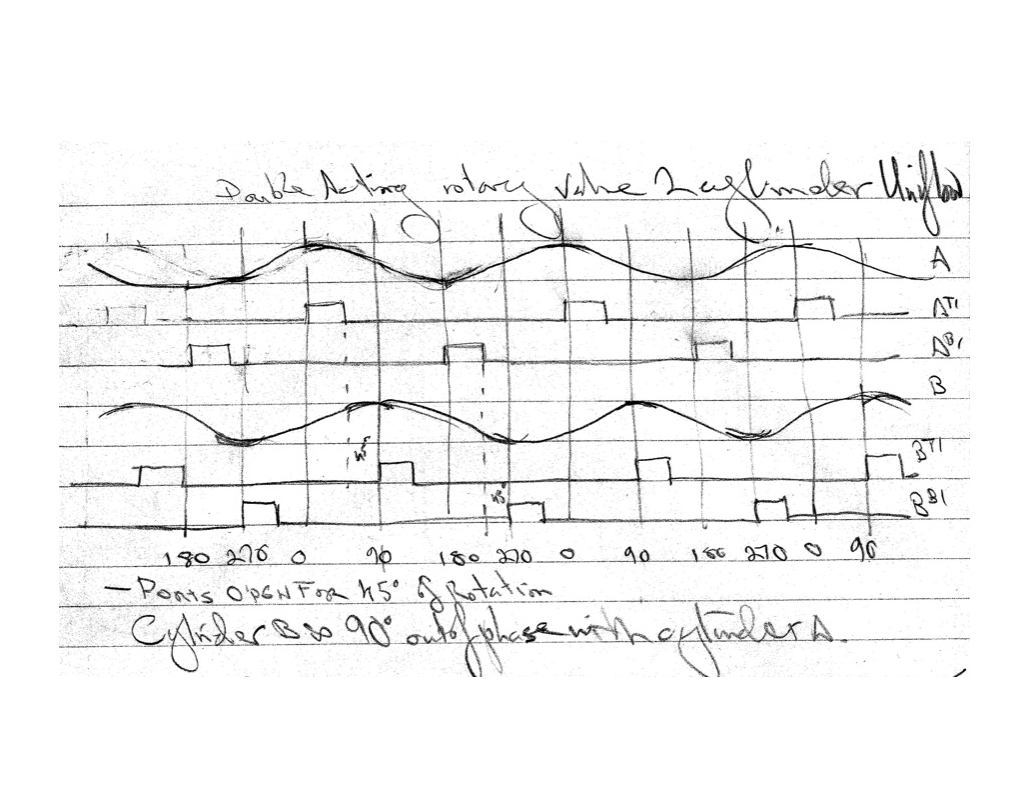 Double Acting rotary Valve 2 cylinder Uniflow
A
AT1
AB1
B
45°
BT1
45°
BB1
180 270 0 90 180 270 0 90 180 270 0 90
- Ports OPEN FOR 45° of Rotation
Cylinder B is 90° out of phase with cylinder A.